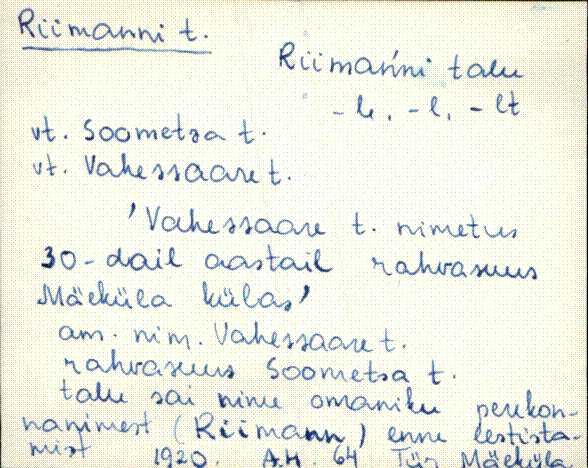 Riimanni t.
Riimańni talu
-le, -l, -lt
vt. Soometsa t.
vt. Vahessaare t.
'Vahessaare t. nimetus
30-dail aastail rahvasuus
Mäeküla külas'
am. nim. Vahessaare t.
rahvasuus Soometsa t.
talu sai nime omaniku perekon-
nanimest (Riimann) enne eestista-
mist 1920. A.M. 64 Tür Mäeküla